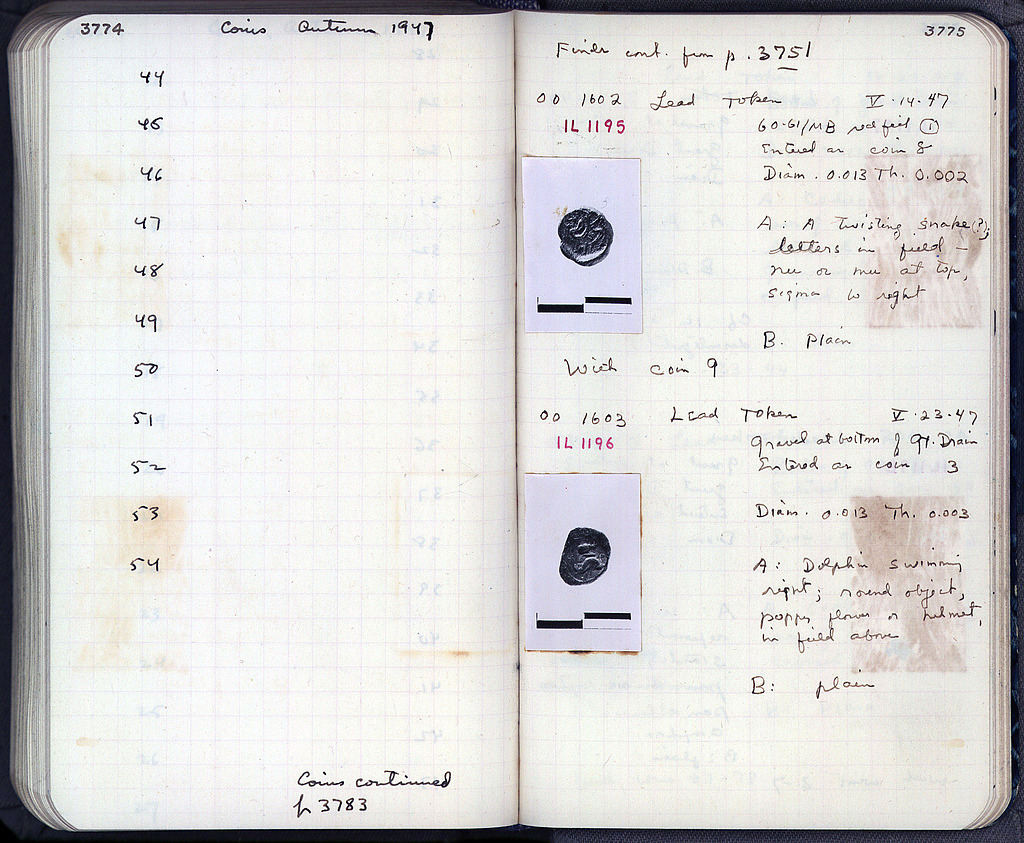 3774 Coins Autumn 1947
44
45
46
47
48
49
50
51
52
53
54
Coins continued
p 3783
3775
Finds cont. from p. 3751
OO 1602 Lead Token V·14·47
IL 1195
60-61/MB red fill ①
Entered as coin 8
Diam. 0.013 Th. 0.002
A: A twisting snake (?);
letters in field —
nu or mu at top,
sigma to right
B. Plain
With coin 9
OO 1603 Lead Token V·23·47
IL 1196
gravel at bottom of Gt. Drain
Entered as coin 3
Diam. 0.013 Th. 0.003
A: Dolphin swimming
right; round object,
poppy flower or helmet,
in field above
B: plain